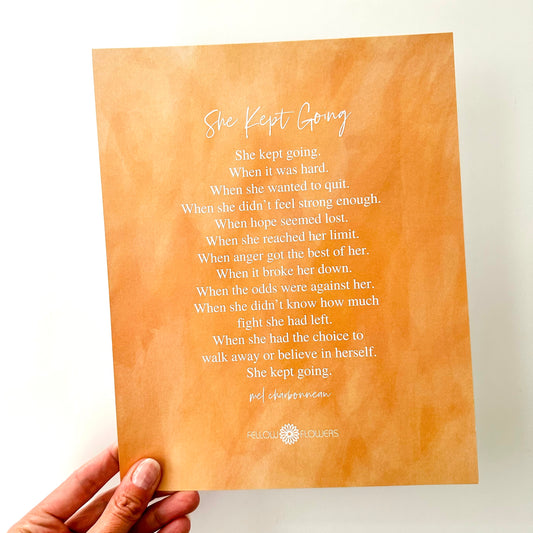 She Kept Going
She kept going.
When it was hard.
When she wanted to quit.
When she didn't feel strong enough.
When hope seemed lost.
When she reached her limit.
When anger got the best of her.
When it broke her down.
When the odds were against her.
When she didn't know how much
fight she had left.
When she had the choice to
walk away or believe in herself.
She kept going.
mel charbonneau
FELLOW FLOWERS